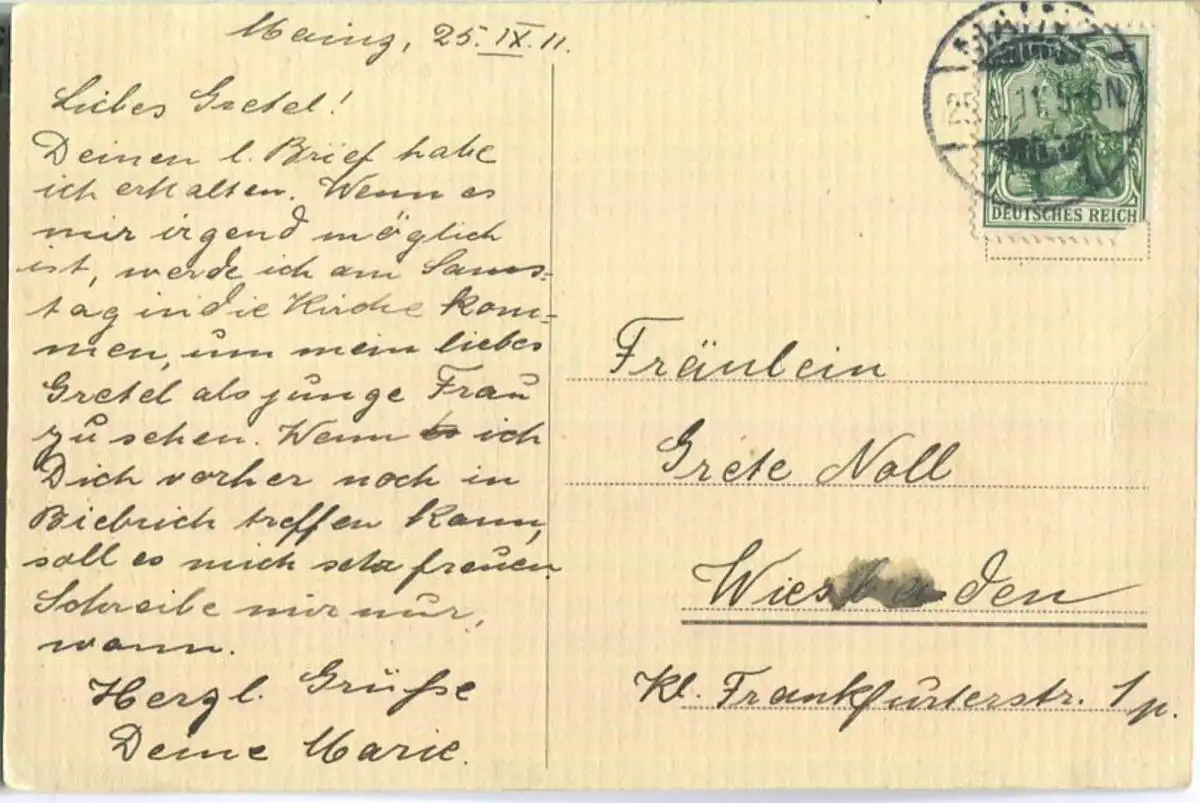 Mainz, 25. IX. 11.
Liebes Gretel!
Deinen l. Brief habe
ich erhalten. Wenn es
mir irgend möglich
ist, werde ich am Sams-
tag in die Kirche kom-
men, um mein liebes
Gretel als junge Frau
zu sehen. Wenn ich
Dich vorher noch in
Biebrich treffen kann,
soll es mich sehr freuen.
Schreibe mir nur,
wann.
Herzl. Grüße
Deine Marie.
MAINZ
25. 11. 5-6N
DEUTSCHES REICH
Fräulein
Grete Noll
Wiesbaden
Kl. Frankfurterstr. 1 p.